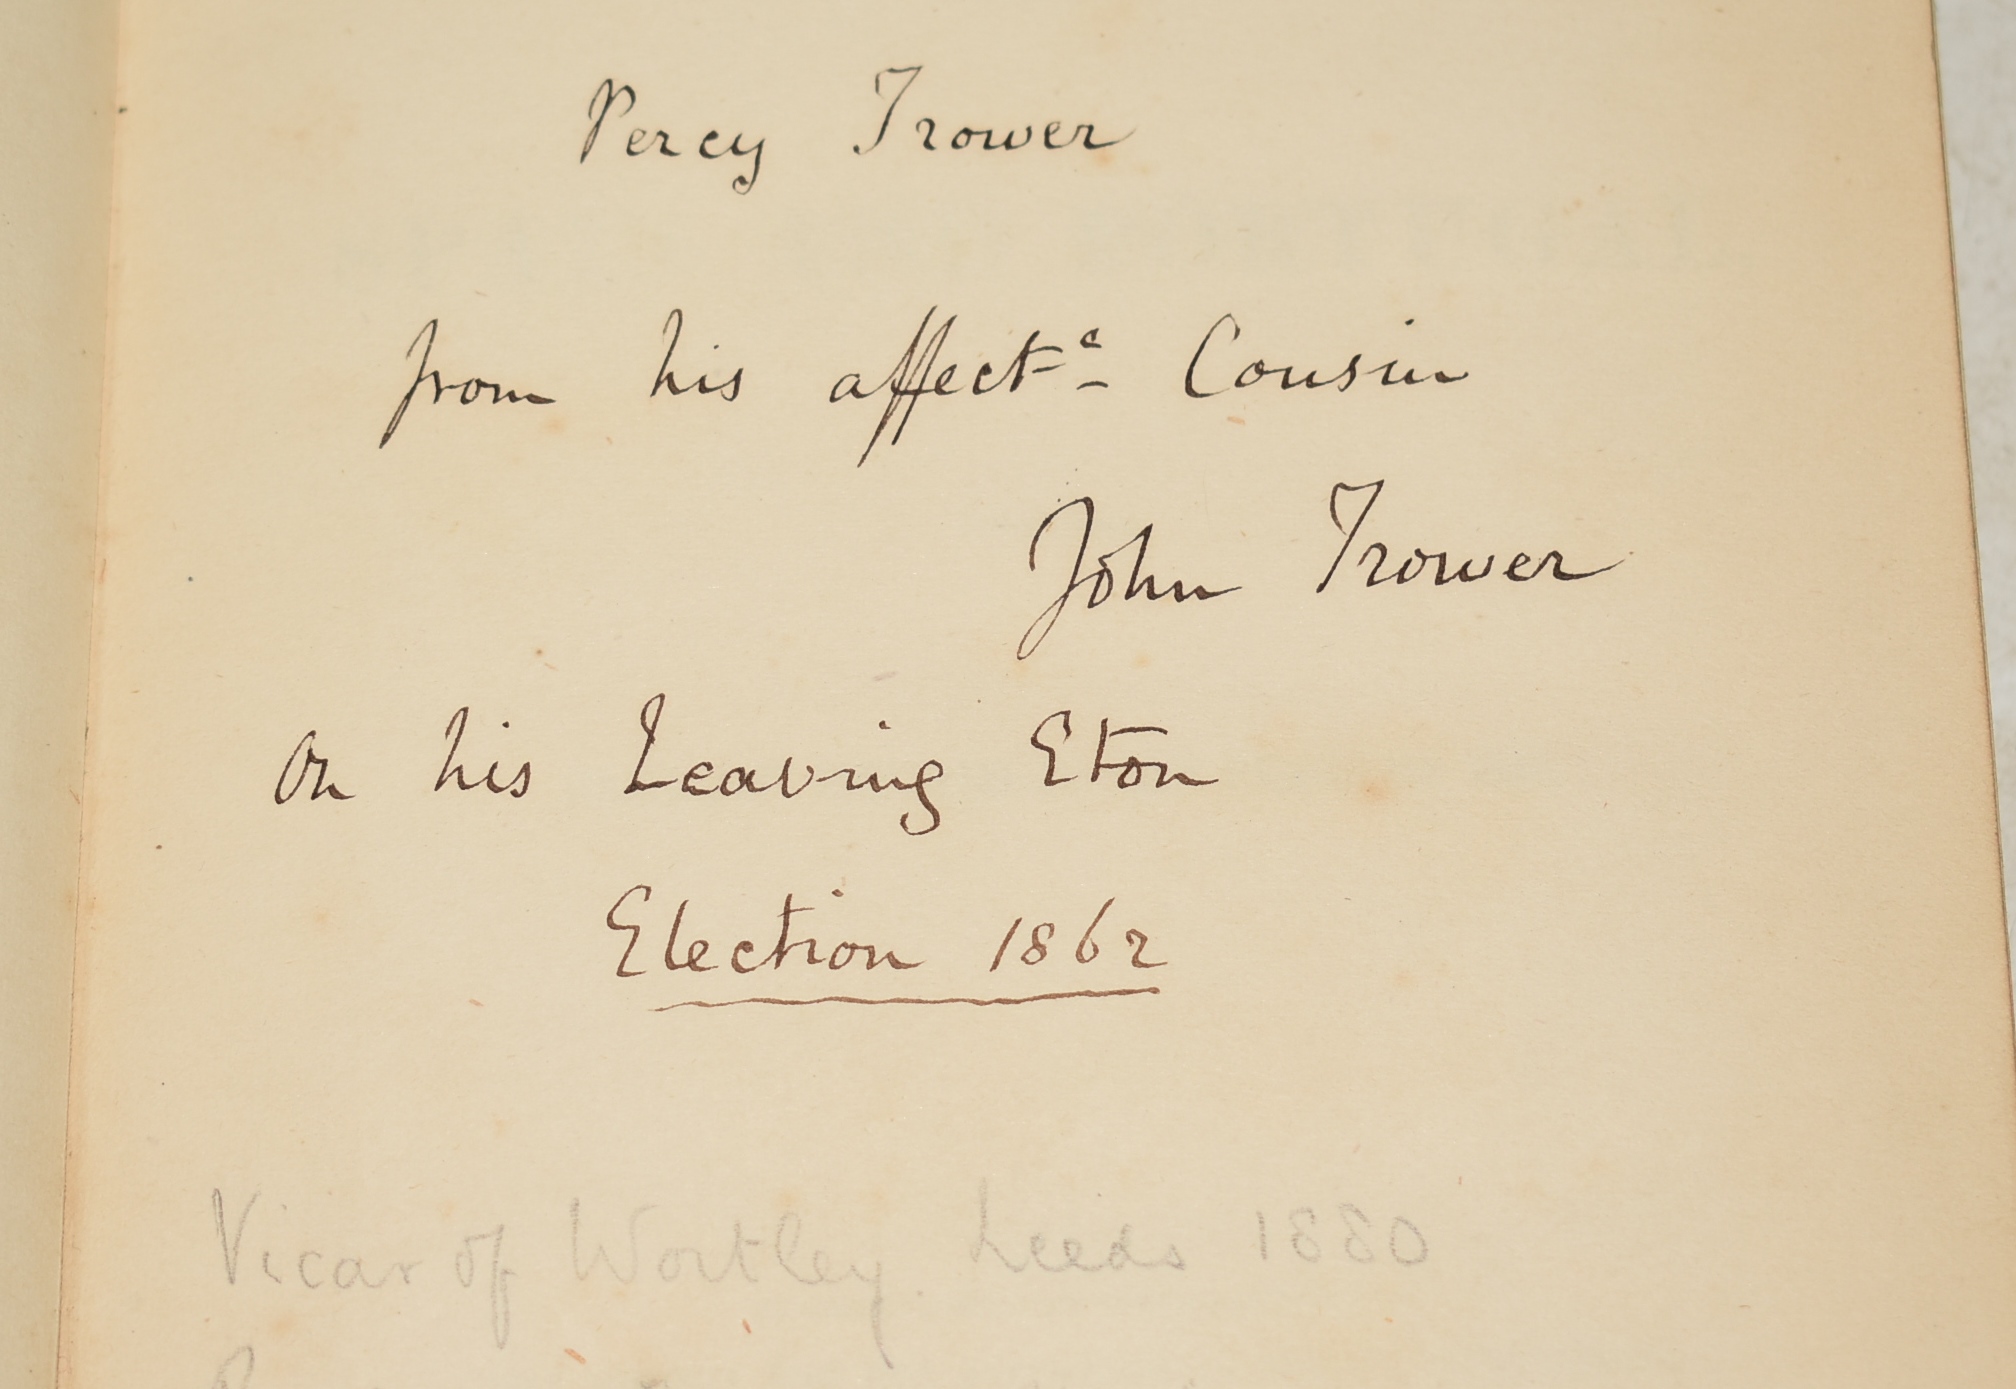 Percy Trower
from his affect^e Cousin
John Trower
On his Leaving Eton
Election 1862
Vicar of Wortley. Leeds 1880